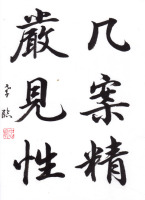 几案精
嚴見性